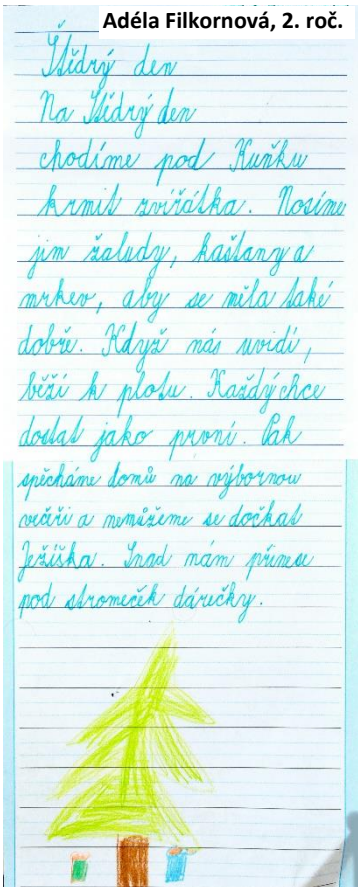 Adéla Filkornová, 2. roč.
Štědrý den
Na Štědrý den
chodíme pod Kuňku
krmit zvířátka. Nosíme
jim žaludy, kaštany a
mrkev, aby se měla také
dobře. Když nás uvidí,
běží k plotu. Každý chce
dostat jako první. Pak
spěcháme domů na výbornou
večeři a nemůžeme se dočkat
Ježíška. Snad nám přinese
pod stromeček dárečky.